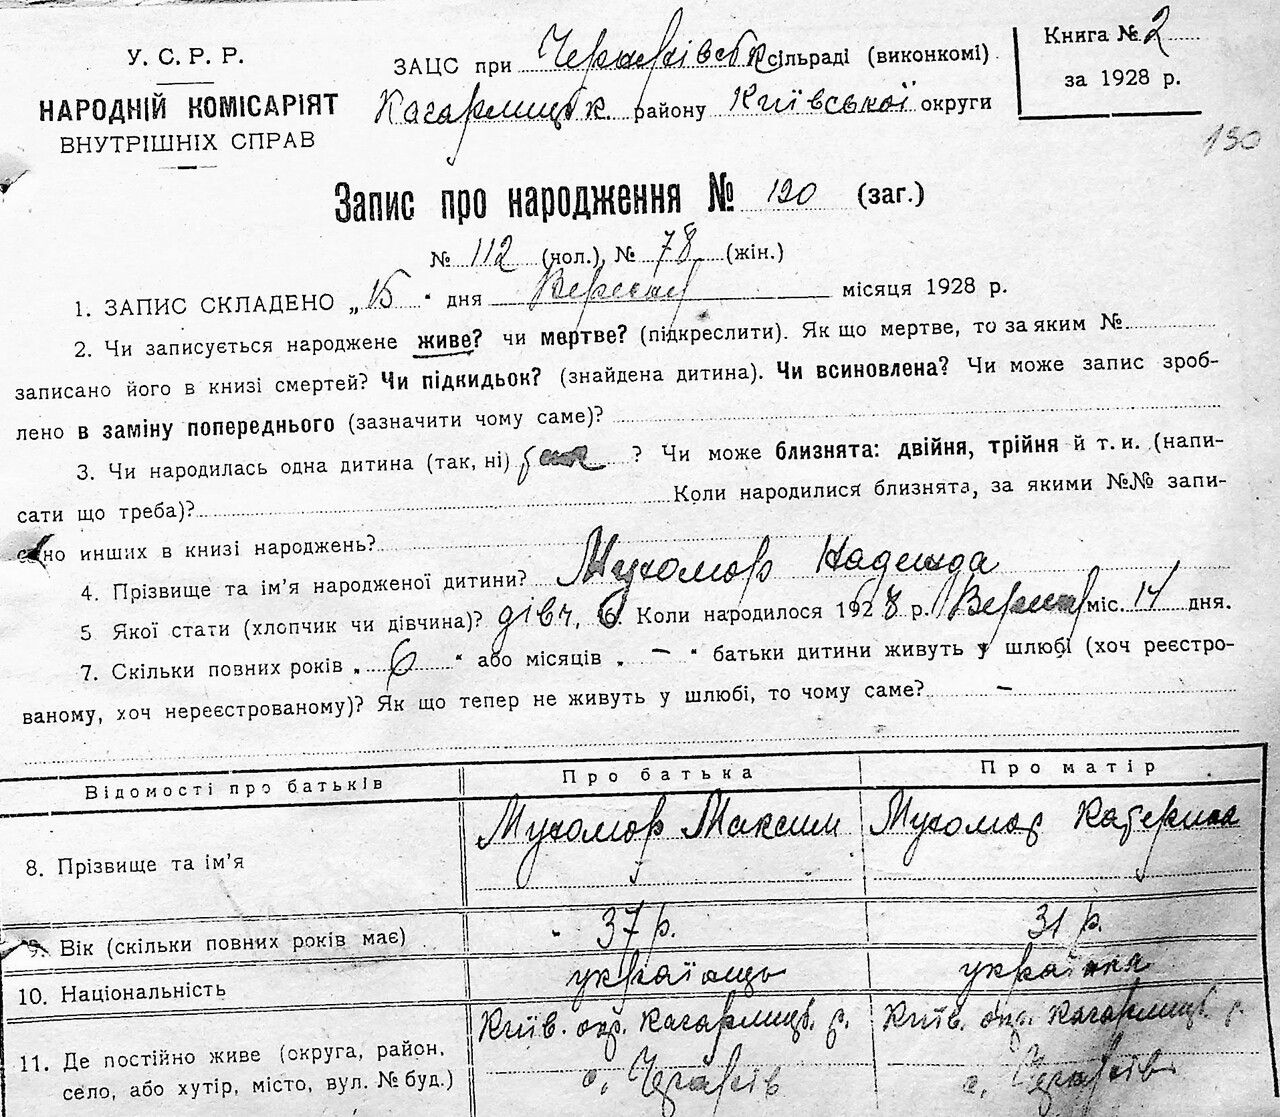 У. С. Р. Р.
НАРОДНІЙ КОМІСАРІЯТ
ВНУТРІШНІХ СПРАВ
ЗАЦС при сільраді (виконкомі)
Кагарлицьк. району Київської округи
Книга № 2
за 1928 р.
190
Запис про народження № 190 (заг.)
№ 112 (чол.), № 78 (жін.)
1. ЗАПИС СКЛАДЕНО „15“ дня Вересня місяця 1928 р.
2. Чи записується народжене живе? чи мертве? (підкреслити). Як що мертве, то за яким №
записано його в книзі смертей? Чи підкидьок? (знайдена дитина). Чи всиновлена? Чи може запис зроб-
лено в заміну попереднього (зазначити чому саме)?
3. Чи народилась одна дитина (так, ні) ? Чи може близнята: двійня, трійня й т. и. (напи-
сати що треба)? Коли народилися близнята, за якими №№ запи-
сано инших в книзі народжень?
4. Прізвище та ім'я народженої дитини? Мухомор Надежда
5 Якої стати (хлопчик чи дівчина)? дівч, 6. Коли народилося 1928 р. Вересня міс. 14 дня.
7. Скільки повних років „ 6 “ або місяців „ — “ батьки дитини живуть у шлюбі (хоч реєстро-
ваному, хоч нереєстрованому)? Як що тепер не живуть у шлюбі, то чому саме? —
Відомості про батьків Про батька Про матір
8. Прізвище та ім'я Мухомор Максим Мухомор Катерина
9. Вік (скільки повних років має) 37 р. 31 р.
10. Національність українець українка
11. Де постійно живе (округа, район, село, або хутір, місто, вул. № буд.) Київ. окр. Кагарлицьк. р. Київ. окр. Кагарлицьк. р.